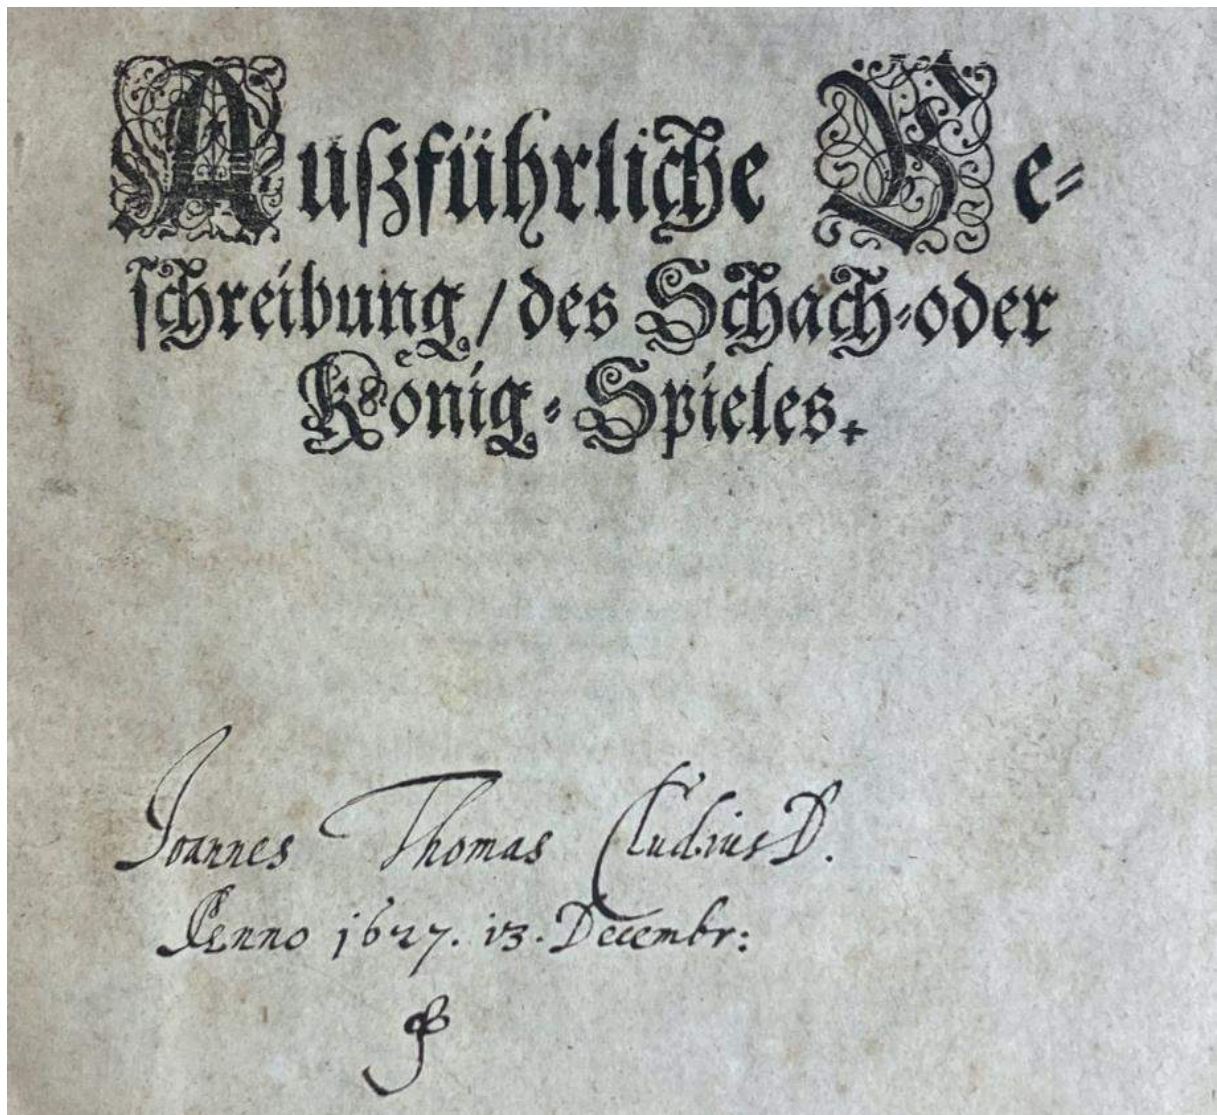 Außführliche Be⸗
ſchreibung / des Schach⸗oder
Koͤnig⸗Spieles.
Joannes Thomas Cludius D.
Anno 1627. 13. Decembr: